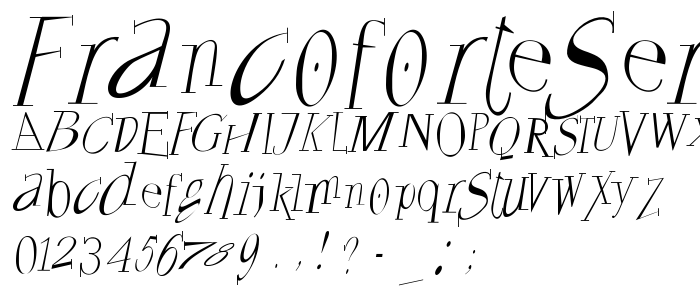 FrancoforteSer
ABCDEFGHIJKLMNOPQRSTUVWX
abcdefghijklmnopqrstuvwxyz
0123456789 .,!?-_:;